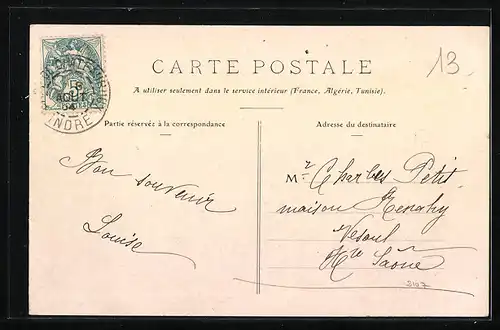 CARTE POSTALE
13
A utiliser seulement dans le service intérieur (France, Algérie, Tunisie).
Partie réservée à la correspondance
Adresse du destinataire
AOUT
INDRE
Bon souvenir
Louise
Mr Charles Petit
maison
Vesoul
Hte Saône